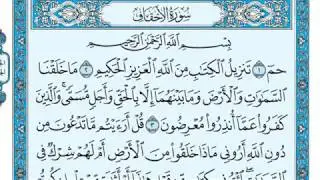 سُورَةُ الأَحْقَافِ
بِسْمِ اللَّهِ الرَّحْمَٰنِ الرَّحِيمِ
حمٓ ١ تَنزِيلُ الْكِتَٰبِ مِنَ اللَّهِ الْعَزِيزِ الْحَكِيمِ ٢ مَا خَلَقْنَا
السَّمَٰوَٰتِ وَالْأَرْضَ وَمَا بَيْنَهُمَا إِلَّا بِالْحَقِّ وَأَجَلٍ مُّسَمًّى وَالَّذِينَ
كَفَرُوا عَمَّا أُنذِرُوا مُعْرِضُونَ ٣ قُلْ أَرَءَيْتُم مَّا تَدْعُونَ مِن
دُونِ اللَّهِ أَرُونِي مَاذَا خَلَقُوا مِنَ الْأَرْضِ أَمْ لَهُمْ شِرْكٌ فِي